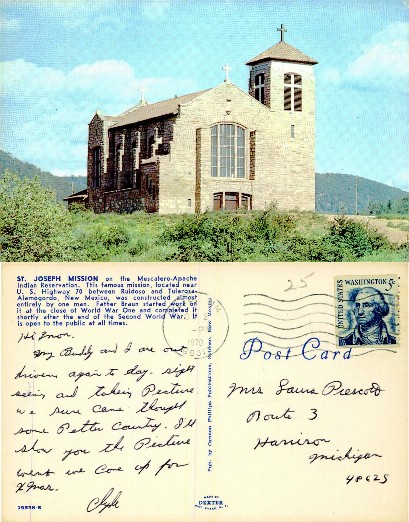 ST. JOSEPH MISSION on the Mescalero-Apache
Indian Reservation. This famous mission, located near
U. S. Highway 70 between Ruidoso and Tularosa-
Alamogordo, New Mexico, was constructed almost
entirely by one man. Father Braun started work of
it at the close of World War One and completed it
shortly after the end of the Second World War. It
is open to the public at all times.
Hi Mom.
My Buddy and I are out
driven again to day. sight
seein and takein Picture
we sure came though
some Petter County. I'll
show you the Picture
went we Come up for
Xmas.
Clyde
19838-B
MADE BY
DEXTER
1970
25
UNITED STATES
WASHINGTON 5c
Post Card
Mrs Laura Prescott
Route 3
Harrison
Michigan
48625